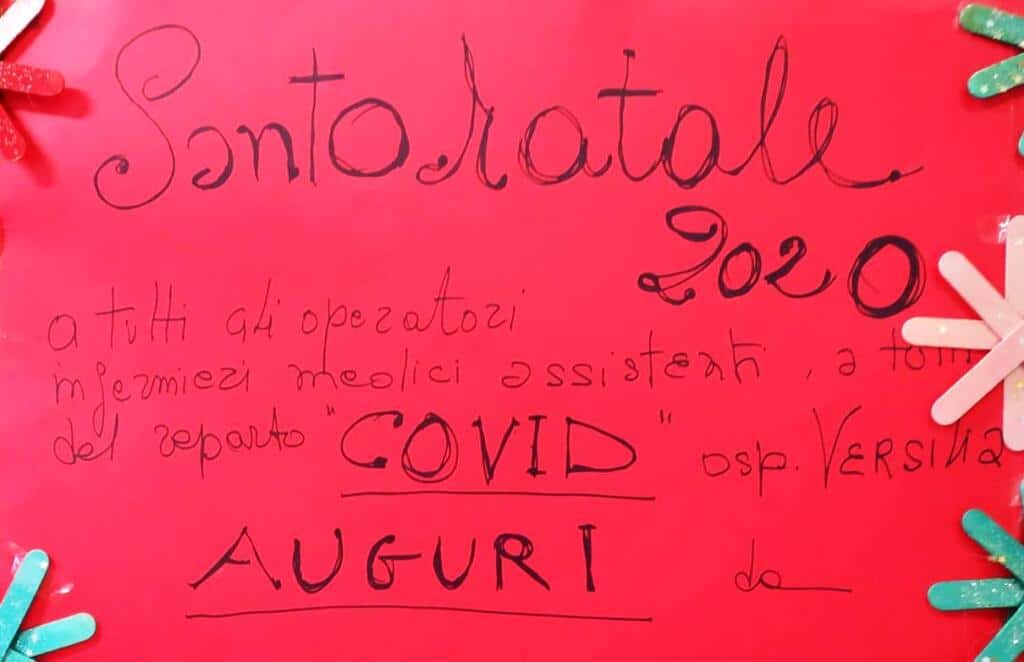 Santo Natale
2020
a tutti gli operatori
infermieri medici assistenti, a
del reparto "COVID" osp. VERSILIA
AUGURI da